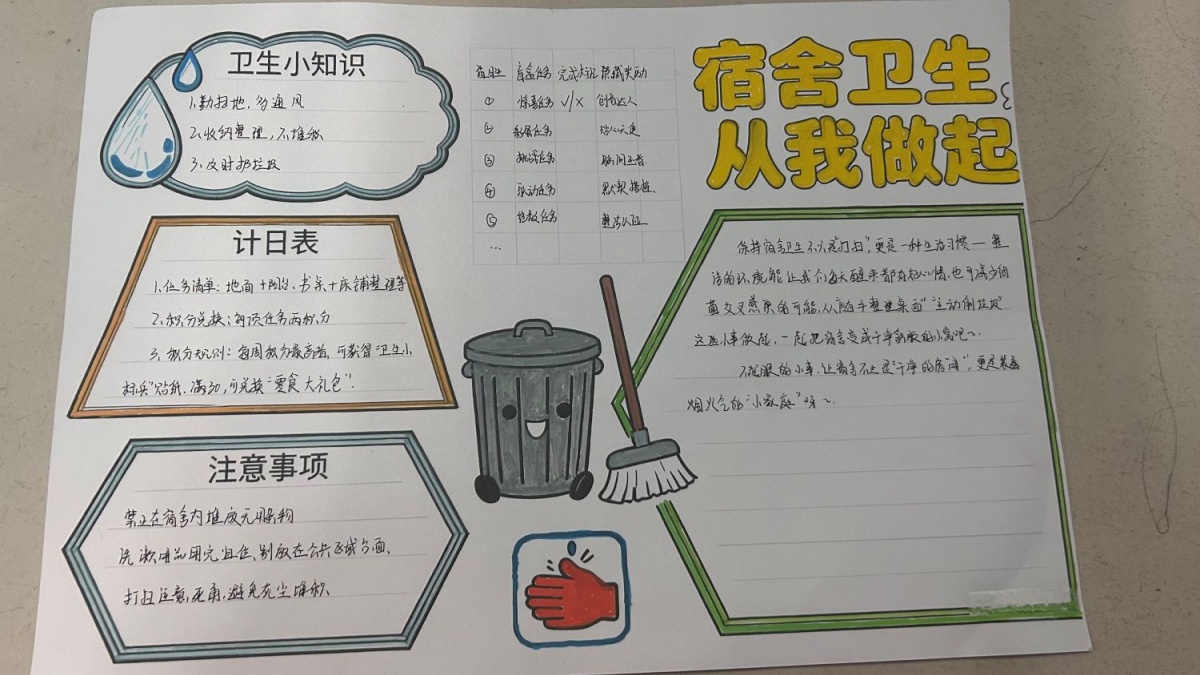 卫生小知识
1.勤扫地,多通风
2.收纳整理,不堆积
3.及时扔垃圾
计日表
1.任务清单:地面+阳台、书桌+床铺整理等
2.积分兑换:每项任务两积分
3.积分规则:每周积分最高者,可获得"卫生小
标兵"贴纸.满50,可兑换"零食大礼包".
注意事项
禁止在宿舍内堆放元爆物
洗漱用品用完归位、别放在公共区域台面、
打扫注意死角,避免灰尘堆积、
盲盒任务 完成情况 隐藏奖励
① 惊喜任务 √/× 创意达人
② 任务 贴心天使
③ 挑战任务 瞬间王者
④ 联动任务 默契搭档
⑤ 拯救任务
...
宿舍卫生
从我做起
保持宿舍卫生不只是"打扫",更是一种生活习惯—整
洁的环境能让我们每天醒来都有好心情.也可减少细
菌交叉感染的可能,从随手整理桌面""主动倒垃圾"
这些小事做起,一起把宿舍变成干净的小窝吧~.
的小事.让宿舍不止是"干净的房间",更是装满
烟火气的"小家庭"呀~.